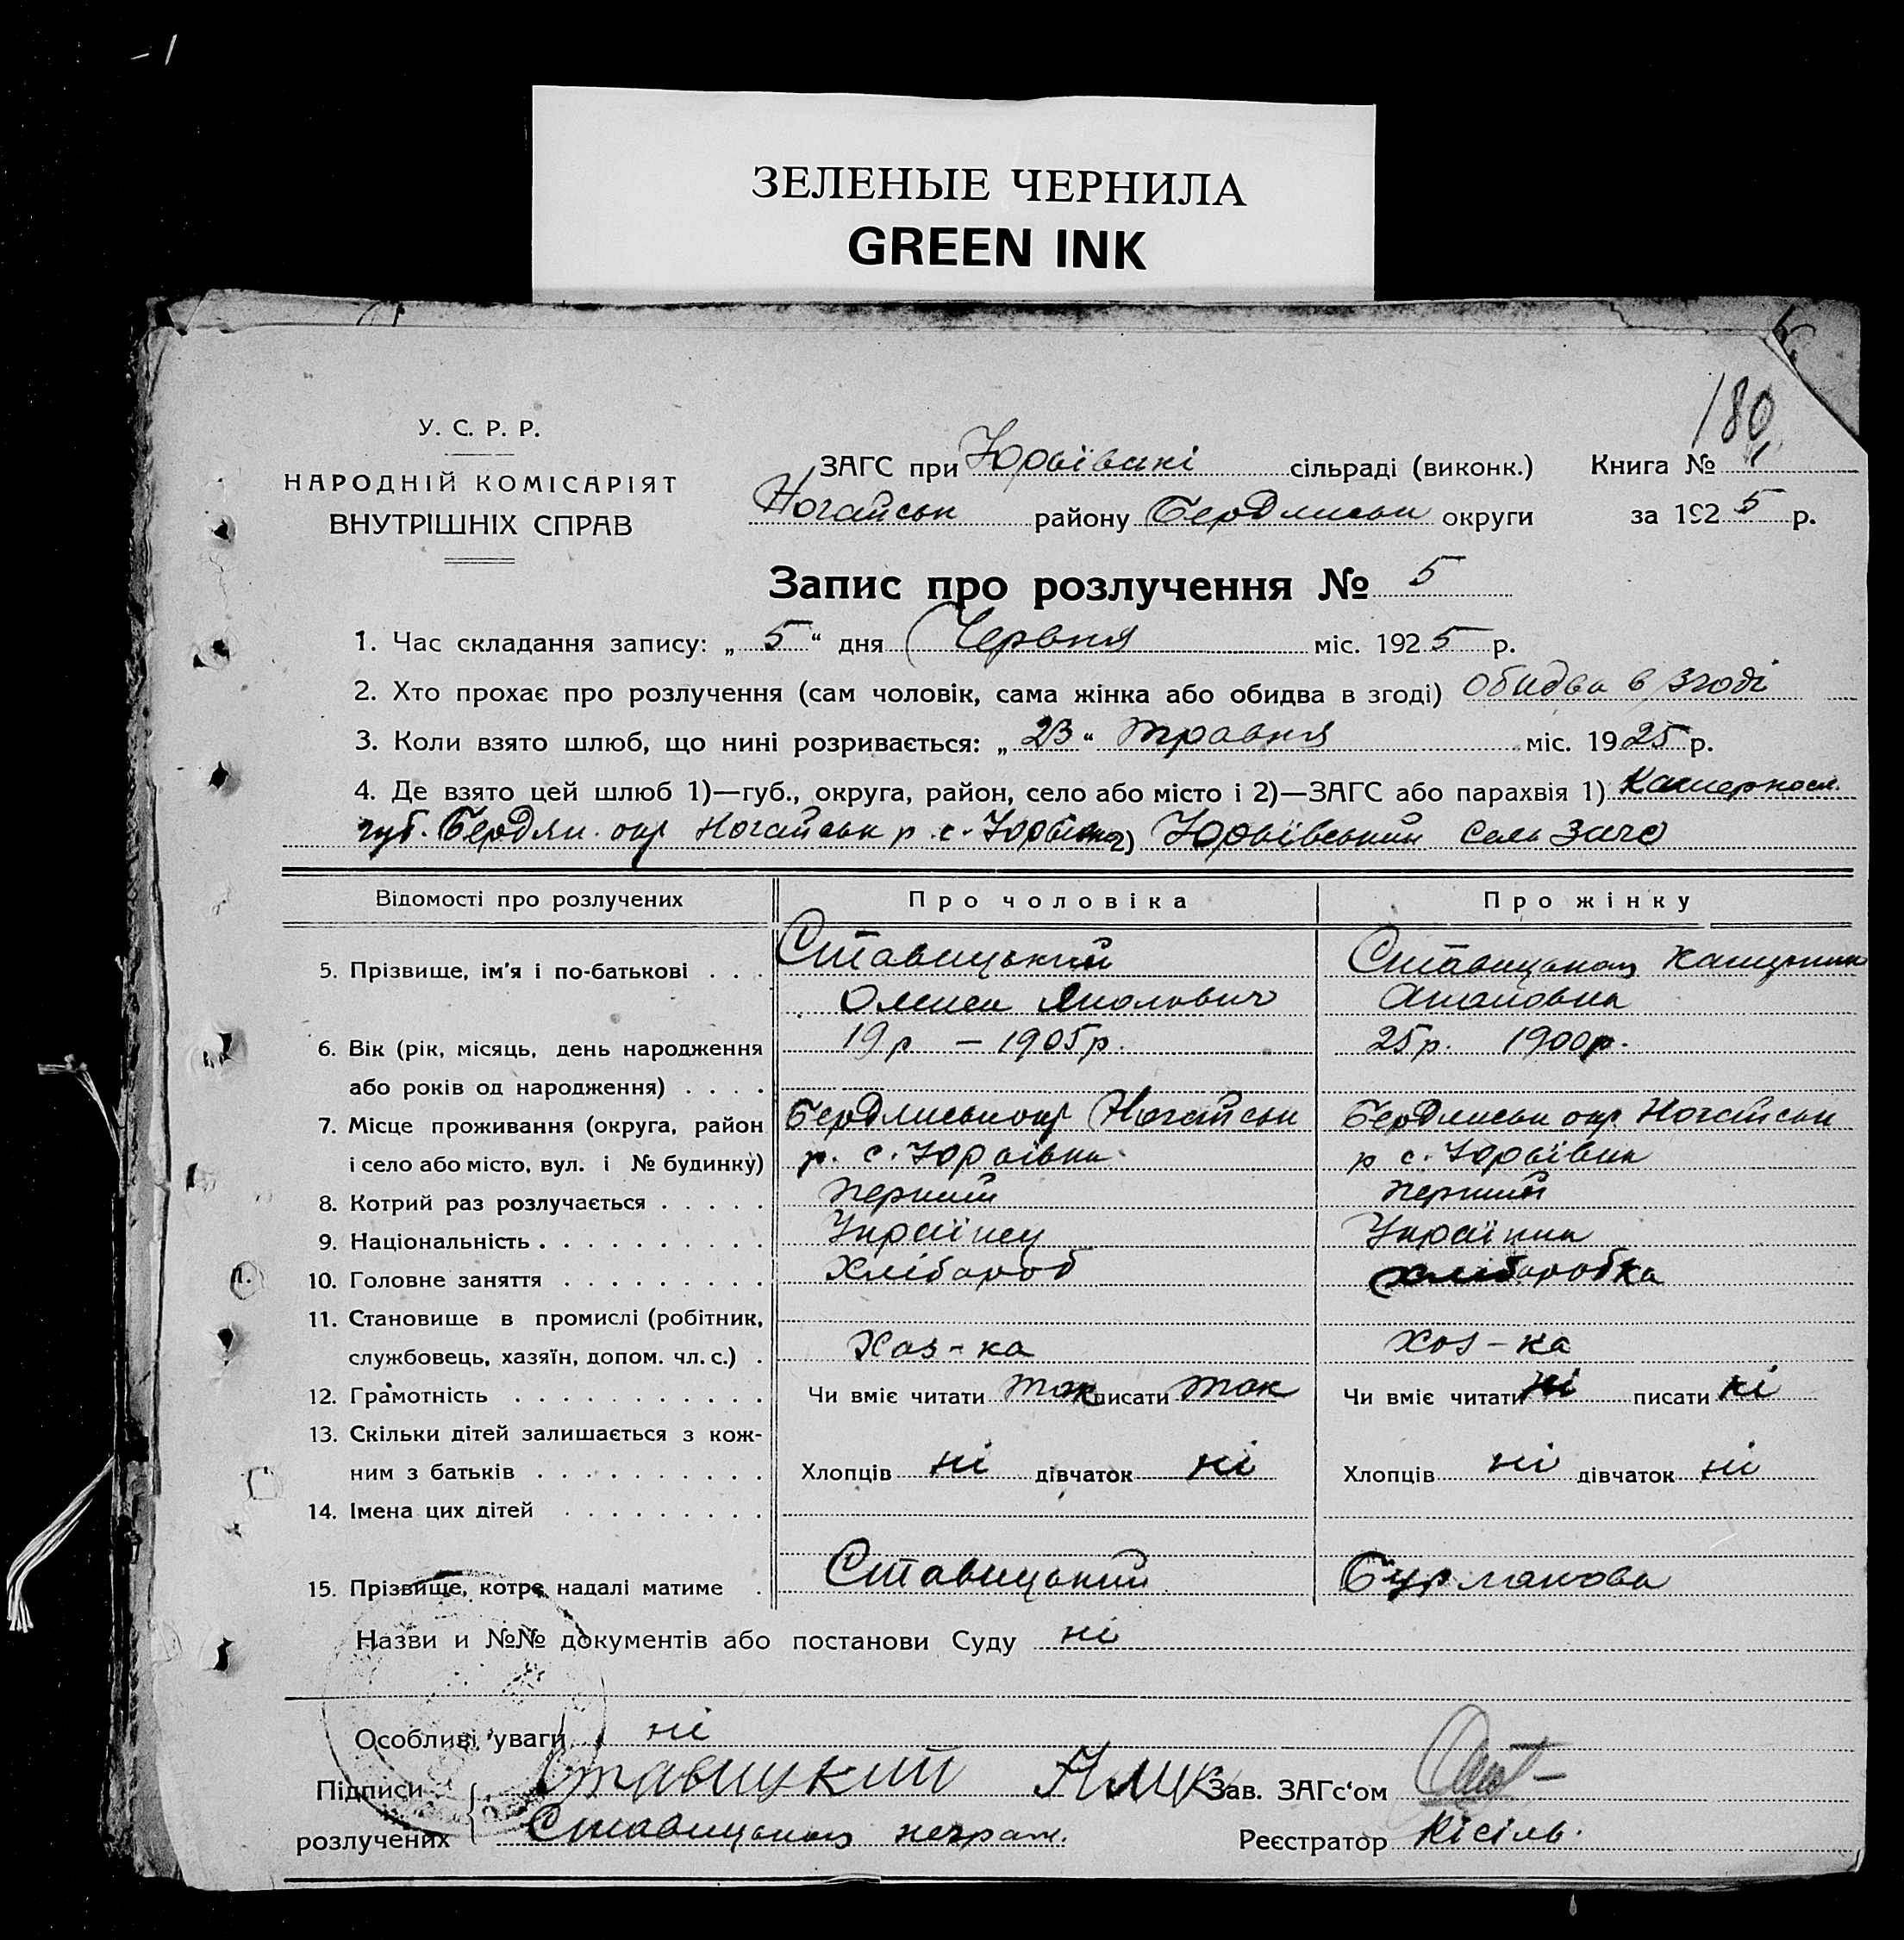 ЗЕЛЕНЫЕ ЧЕРНИЛА
GREEN INK
180
У. С. Р. Р.
НАРОДНІЙ КОМІСАРІЯТ
ВНУТРІШНІХ СПРАВ
ЗАГС при Юрьївскі сільраді (виконк.) Книга №
Ногайськ району Бердянськ округи за 1925 р.
Запис про розлучення № 5
1. Час складання запису: „ 5 “ дня Червня міс. 1925 р.
2. Хто прохає про розлучення (сам чоловік, сама жінка або обидва в згоді) Обидва в згоді
3. Коли взято шлюб, що нині розривається: „ 23 “ травня міс. 1925 р.
4. Де взято цей шлюб 1)—губ., округа, район, село або місто і 2)—ЗАГС або парахвія 1)
губ. Бердян. окр Ногайськ р. с. Юрьівка 2) Юрьївський Сель Загс
Відомості про розлучених Про чоловіка Про жінку
5. Прізвище, ім'я і по-батькові . . . Ставицький Ставицькая
6. Вік (рік, місяць, день народження 19 р — 1905 р. 25 р. 1900 р.
або років од народження) . . . .
7. Місце проживання (округа, район Бердянськ окр Ногайськ Бердянськ окр Ногайськ
і село або місто, вул. і № будинку) р. с. Юрьівка р с. Юрьівка
8. Котрий раз розлучається . . . . . перший перший
9. Національність . . . . . . . . . . Українец Українка
10. Головне заняття . . . . . . . . . Хлібороб хліборобка
11. Становище в промислі (робітник,
службовець, хазяїн, допом. чл. с.) . Хоз-ка Хоз-ка
12. Грамотність . . . . . . . . . . . Чи вміє читати так писати так Чи вміє читати ні писати ні
13. Скільки дітей залишається з кож-
ним з батьків . . . . . . . . . . Хлопців ні дівчаток ні Хлопців ні дівчаток ні
14. Імена цих дітей . . . . . . . . .
15. Прізвище, котре надалі матиме . Ставицький Бурлакова
Назви и №№ документів або постанови Суду ні
Особливі уваги ні
Підписи Ставицкий Зав. ЗАГс‘ом
розлучених Ставицькая неграм. Реєстратор Кісіль.